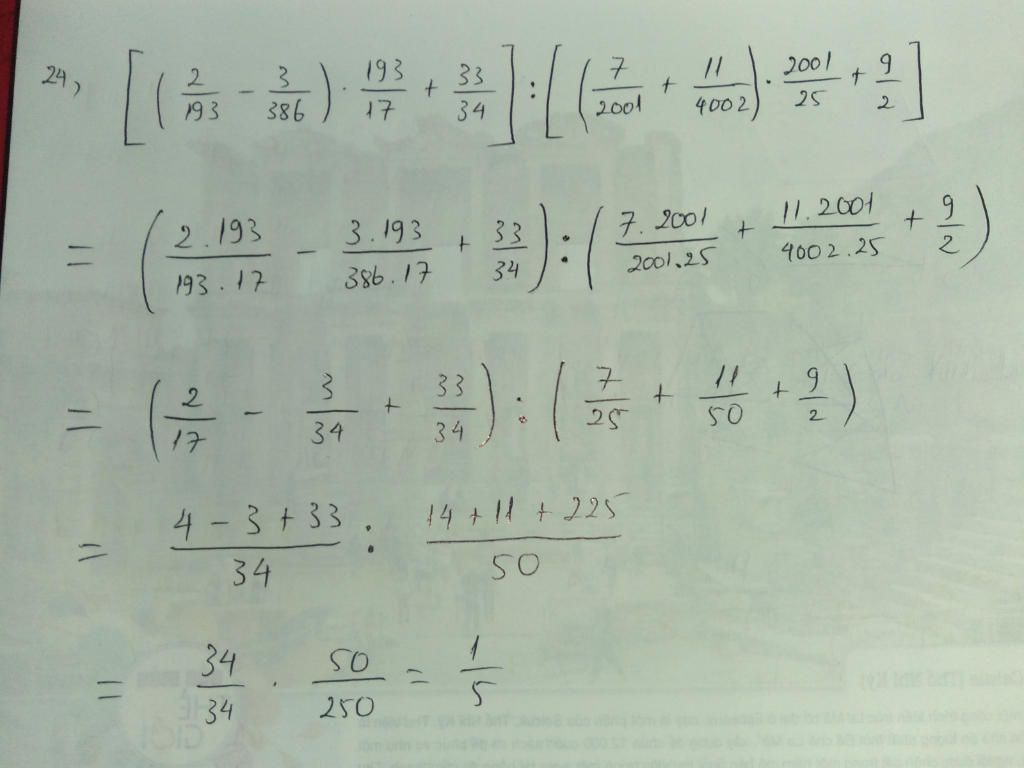 24, [ ( 2/193 - 3/386 ) . 193/17 + 33/34 ] : [ ( 7/2001 + 11/4002 ) . 2001/25 + 9/2 ]
= ( 2.193/193.17 - 3.193/386.17 + 33/34 ) : ( 7.2001/2001.25 + 11.2001/4002.25 + 9/2 )
= ( 2/17 - 3/34 + 33/34 ) : ( 7/25 + 11/50 + 9/2 )
= 4 - 3 + 33/34 : 14 + 11 + 225/50
= 34/34 . 50/250 = 1/5